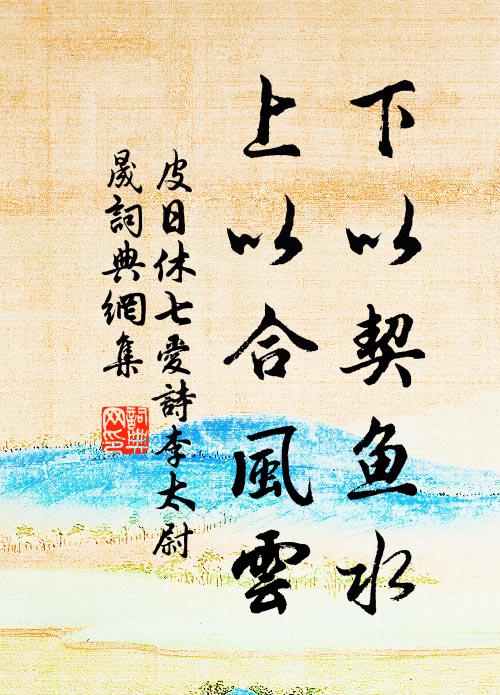 下以契鱼水
上以合風雲
皮日休七愛詩李太尉
晟詞典網集
詞典網印